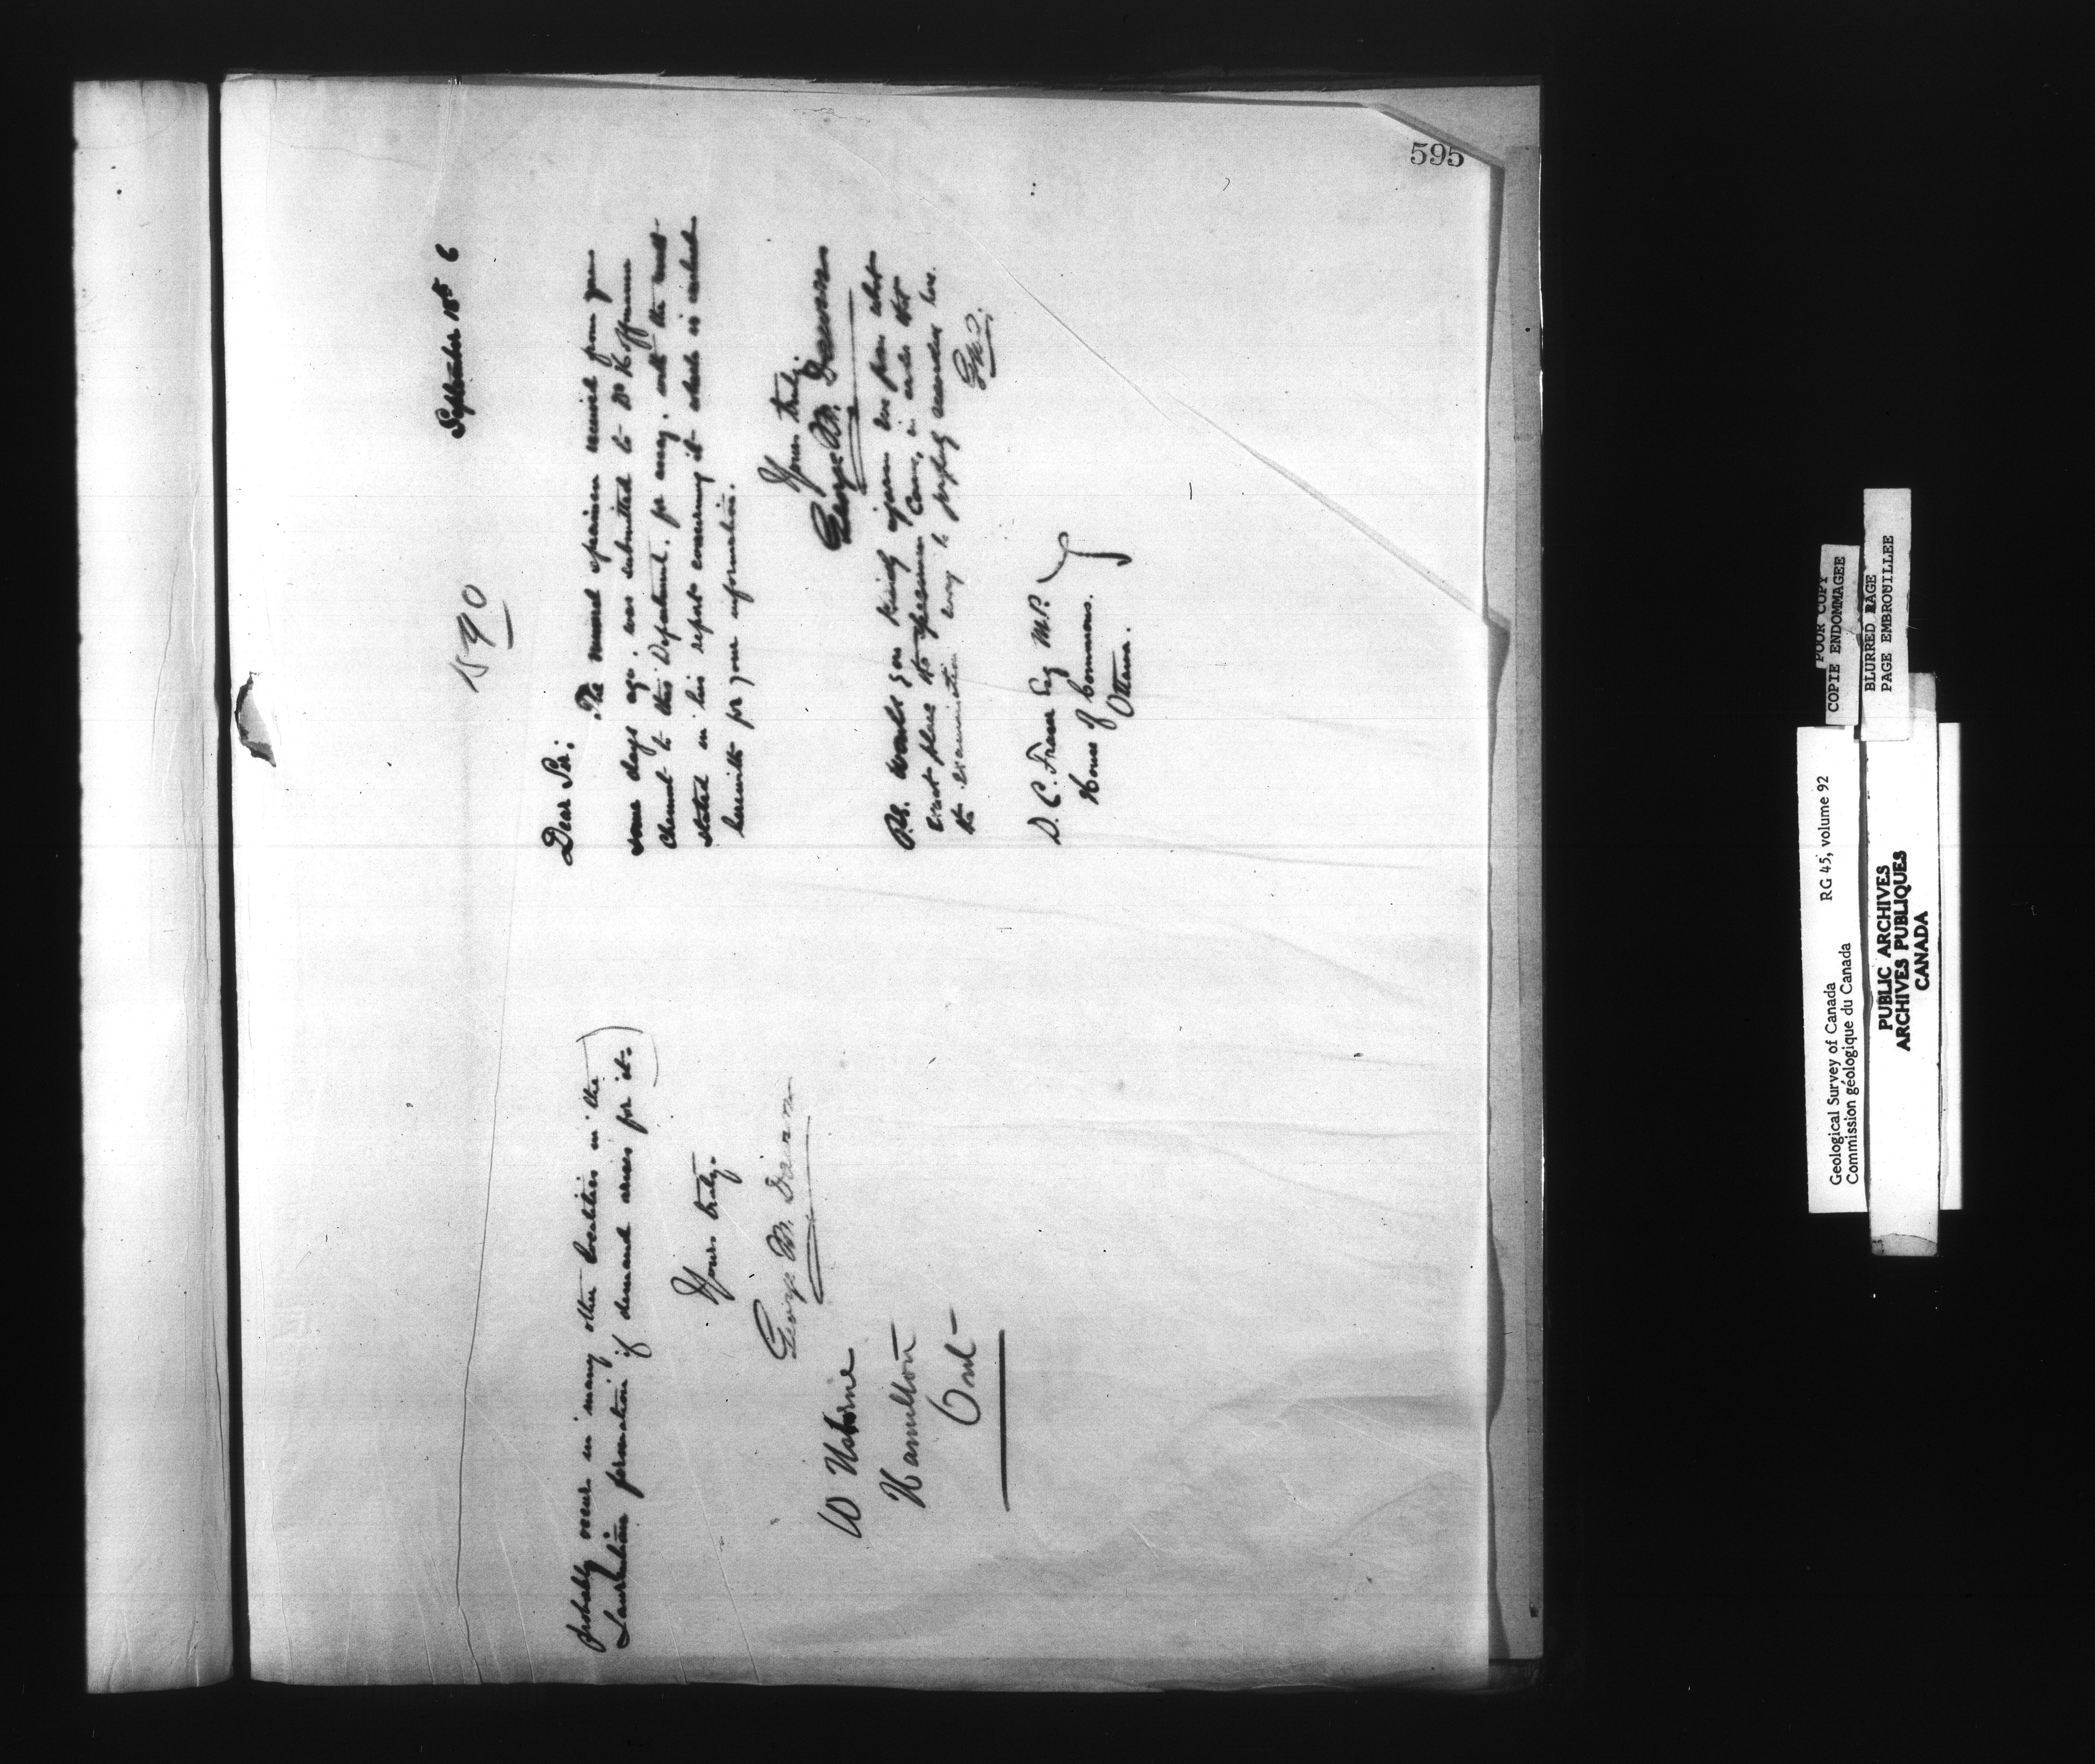 probably occurs in many other localities in the
Laurentian formation if demand arises for it.)
Yours truly.
George M. Dawson
W Usborne
Hamilton
Ont
595
September 18th 6
1590
Dear Sir:
The mineral specimen received from you
some days ago. was submitted to Dr Hoffmann
Chemist to this Department. for assay. with the result
stated in his report concerning it which is enclosed
herewith for your information.
Yours truly
George M. Dawson
P.S. Would you kindly inform me from what
exact place the specimen came, in order that
the examination may be properly recorded here.
G.M.D.
D. C. Fraser Esq M.P.
House of Commons.
Ottawa.
POOR COPY
COPIE ENDOMMAGEE
BLURRED PAGE
PAGE EMBROUILLEE
Geological Survey of Canada RG 45, volume 92
Commission géologique du Canada
PUBLIC ARCHIVES
ARCHIVES PUBLIQUES
CANADA